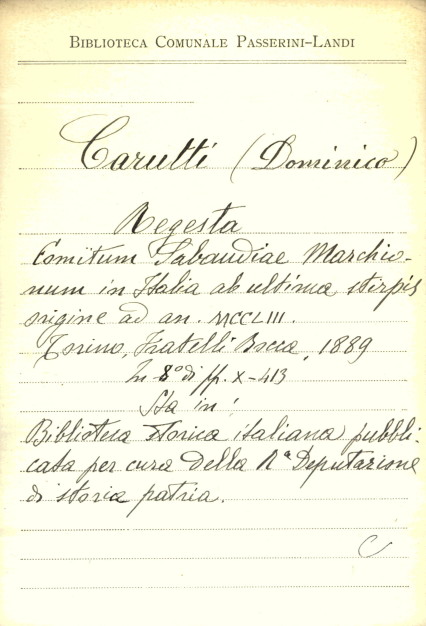 BIBLIOTECA COMUNALE PASSERINI-LANDI
Carutti (Dominico)
Regesta
Comitum Sabaudiae Marchio-
num in Italia ab ultima stirpis
origine ad an. MCCLIII.
Torino, Fratelli Bocca, 1889
In 8° di pp. X-413
Sta in:
Biblioteca storica italiana pubbli-
cata per cura della Rª Deputazione
di storia patria.
C